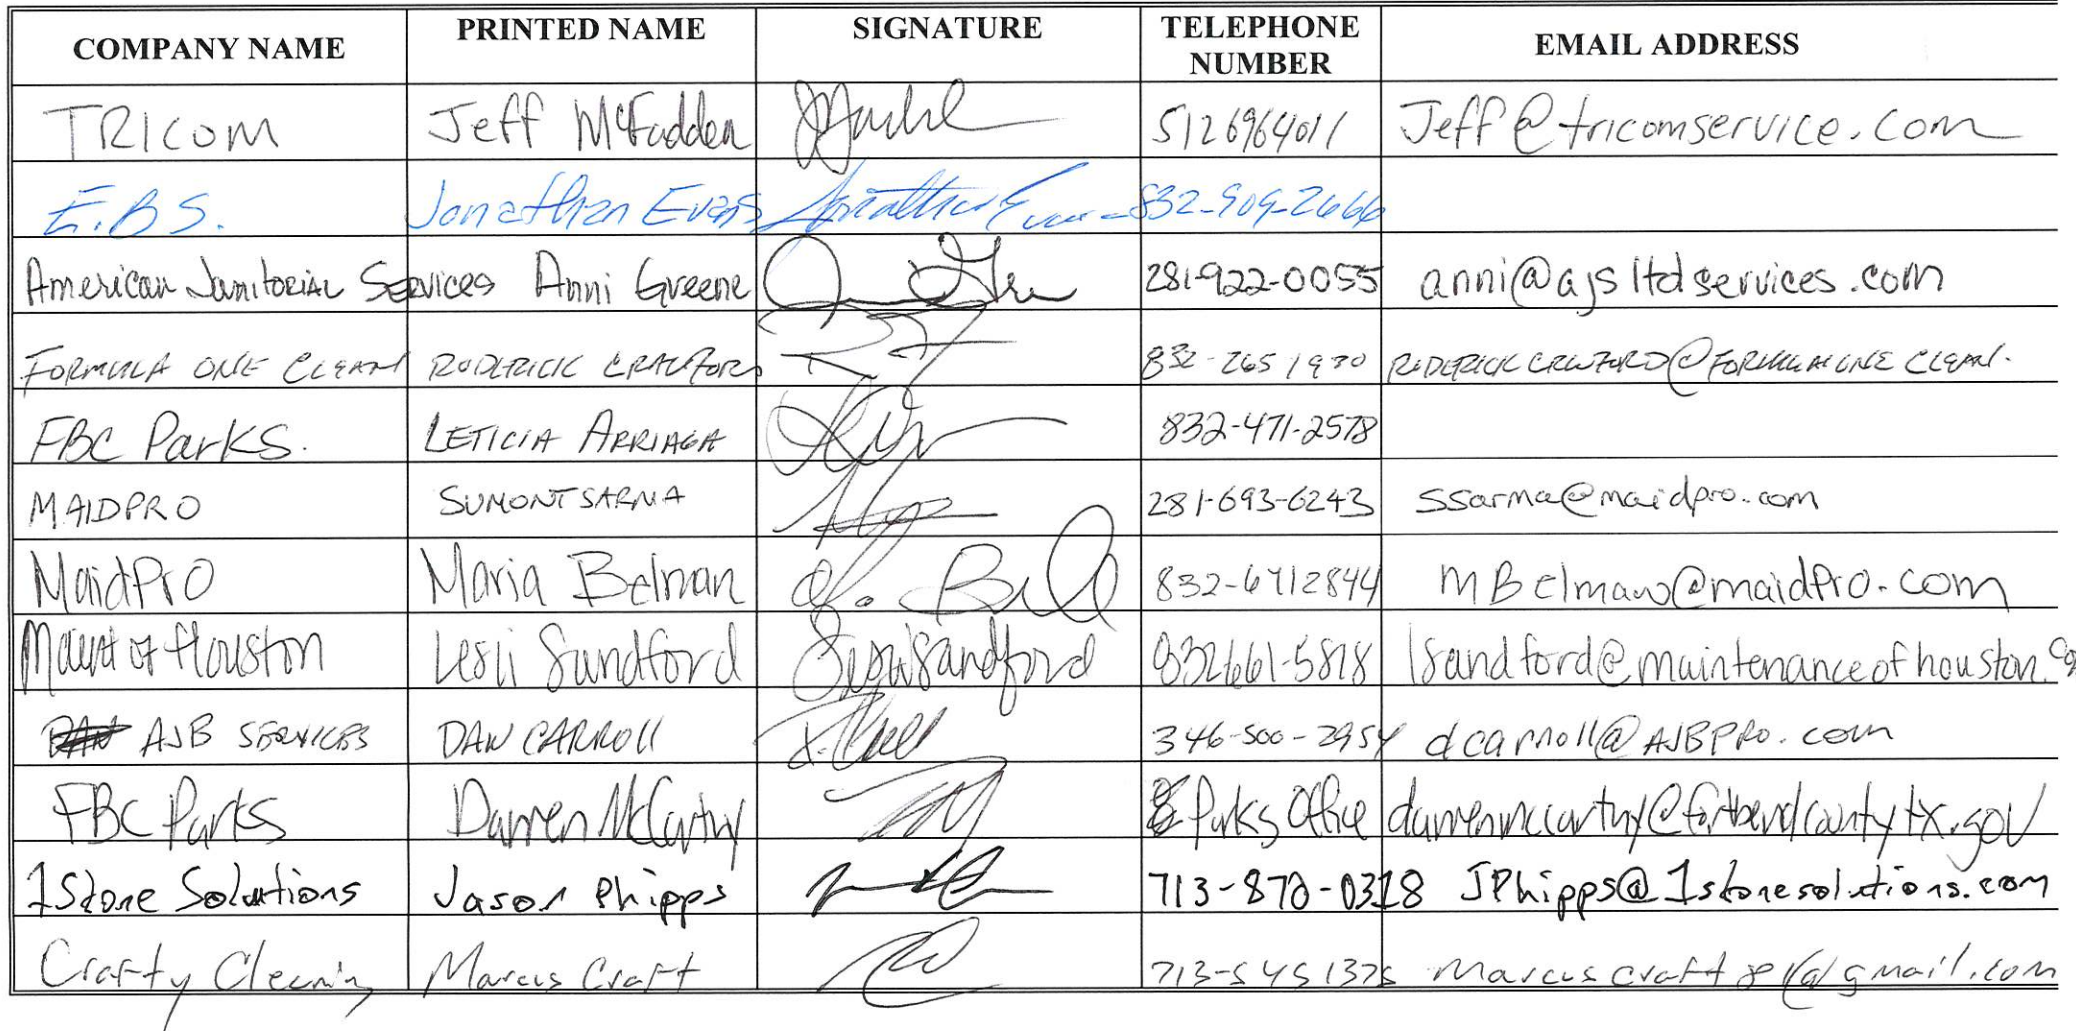 COMPANY NAME PRINTED NAME SIGNATURE TELEPHONE NUMBER EMAIL ADDRESS
TRICOM Jeff McFadden 5126964011 Jeff@tricomservice.com
E.B.S. Jonathan Evans Jonathan Evans 832-909-2666
American Janitorial Services Anni Greene 281-922-0055 anni@ajsltdservices.com
FORMULA ONE CLEAN RODERICK CRAWFORD 832-265 1930 RODERICK CRAWFORD@FORMULA ONE CLEAN.
FBC Parks. LETICIA ARRIAGA 832-471-2578
MAIDPRO SUMONT SARMA 281-693-6243 ssarma@maidpro.com
MaidPro Maria Belman 832-6712844 MBelman@maidpro.com
Maint of Houston Lesli Sandford Lesli Sandford 832661-5818 lsandford@maintenanceofhouston.co
AJB SERVICES DAN CARROll 346-500-2954 dcarroll@AJBPRO.com
FBC Parks Darren McCarthy Parks Office darren.mccarthy@fortbendcountytx.gov
1Stone Solutions Jason Phipps 713-870-0318 JPhipps@1stonesolutions.com
Crafty Cleaning Marcus Craft 713-545 1375 marcuscraft @gmail.com